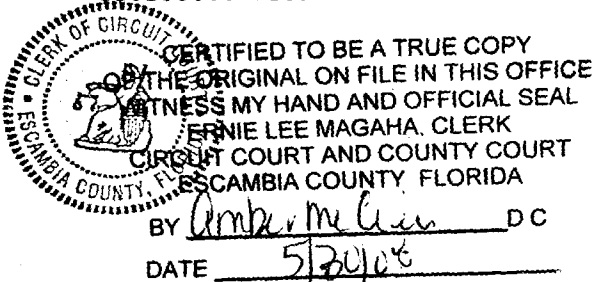 CLERK OF CIRCUIT
ESCAMBIA COUNTY, FL
CERTIFIED TO BE A TRUE COPY
OF THE ORIGINAL ON FILE IN THIS OFFICE
WITNESS MY HAND AND OFFICIAL SEAL
ERNIE LEE MAGAHA, CLERK
CIRCUIT COURT AND COUNTY COURT
ESCAMBIA COUNTY FLORIDA
BY Amber D C
DATE 5/30/08